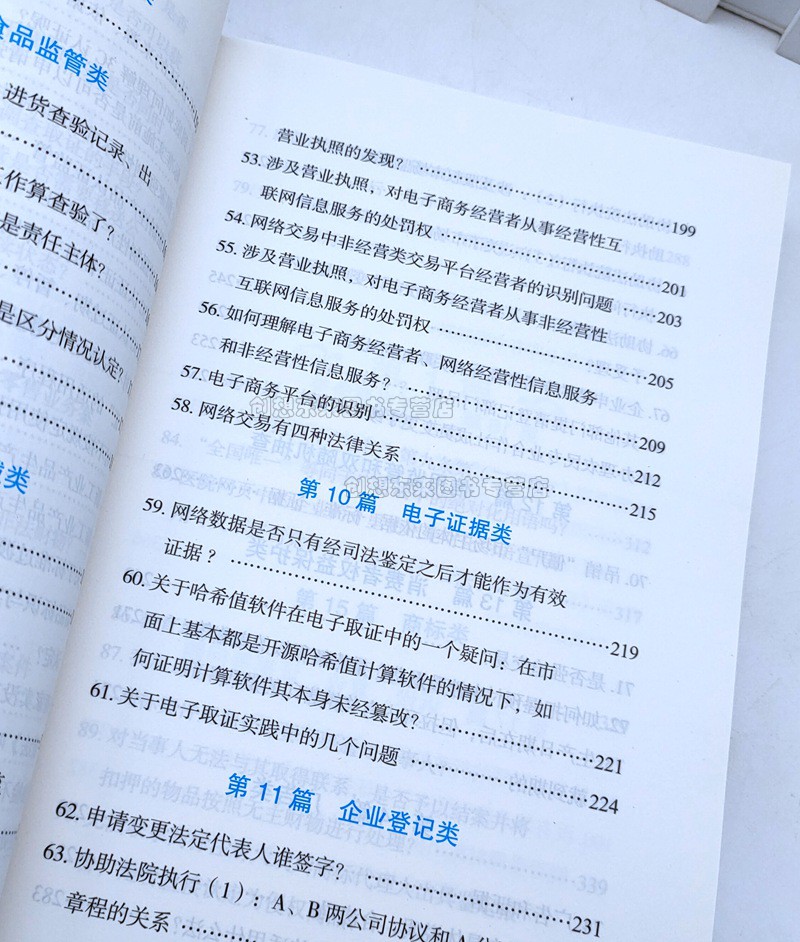 食品监管类
进货查验记录、出
作算查验了?
是责任主体?
是区分情况认定?
类
营业执照的发现? ……199
53. 涉及营业执照，对电子商务经营者从事经营性互
联网信息服务的处罚权 ……201
54. 网络交易中非经营类交易平台经营者的识别问题 ……203
55. 涉及营业执照，对电子商务经营者从事非经营性
互联网信息服务的处罚权 ……205
56. 如何理解电子商务经营者、网络经营性信息服务
和非经营性信息服务? ……209
57. 电子商务平台的识别 ……212
58. 网络交易有四种法律关系 ……215
创想东来图书专营店
创想东来图书专营店
第10篇 电子证据类
59. 网络数据是否只有经司法鉴定之后才能作为有效
证据? ……219
60. 关于哈希值软件在电子取证中的一个疑问：在市
面上基本都是开源哈希值计算软件的情况下，如
何证明计算软件其本身未经篡改? ……221
61. 关于电子取证实践中的几个问题 ……224
第11篇 企业登记类
62. 申请变更法定代表人谁签字? ……231
63. 协助法院执行(1)：A、B两公司协议和A
章程的关系